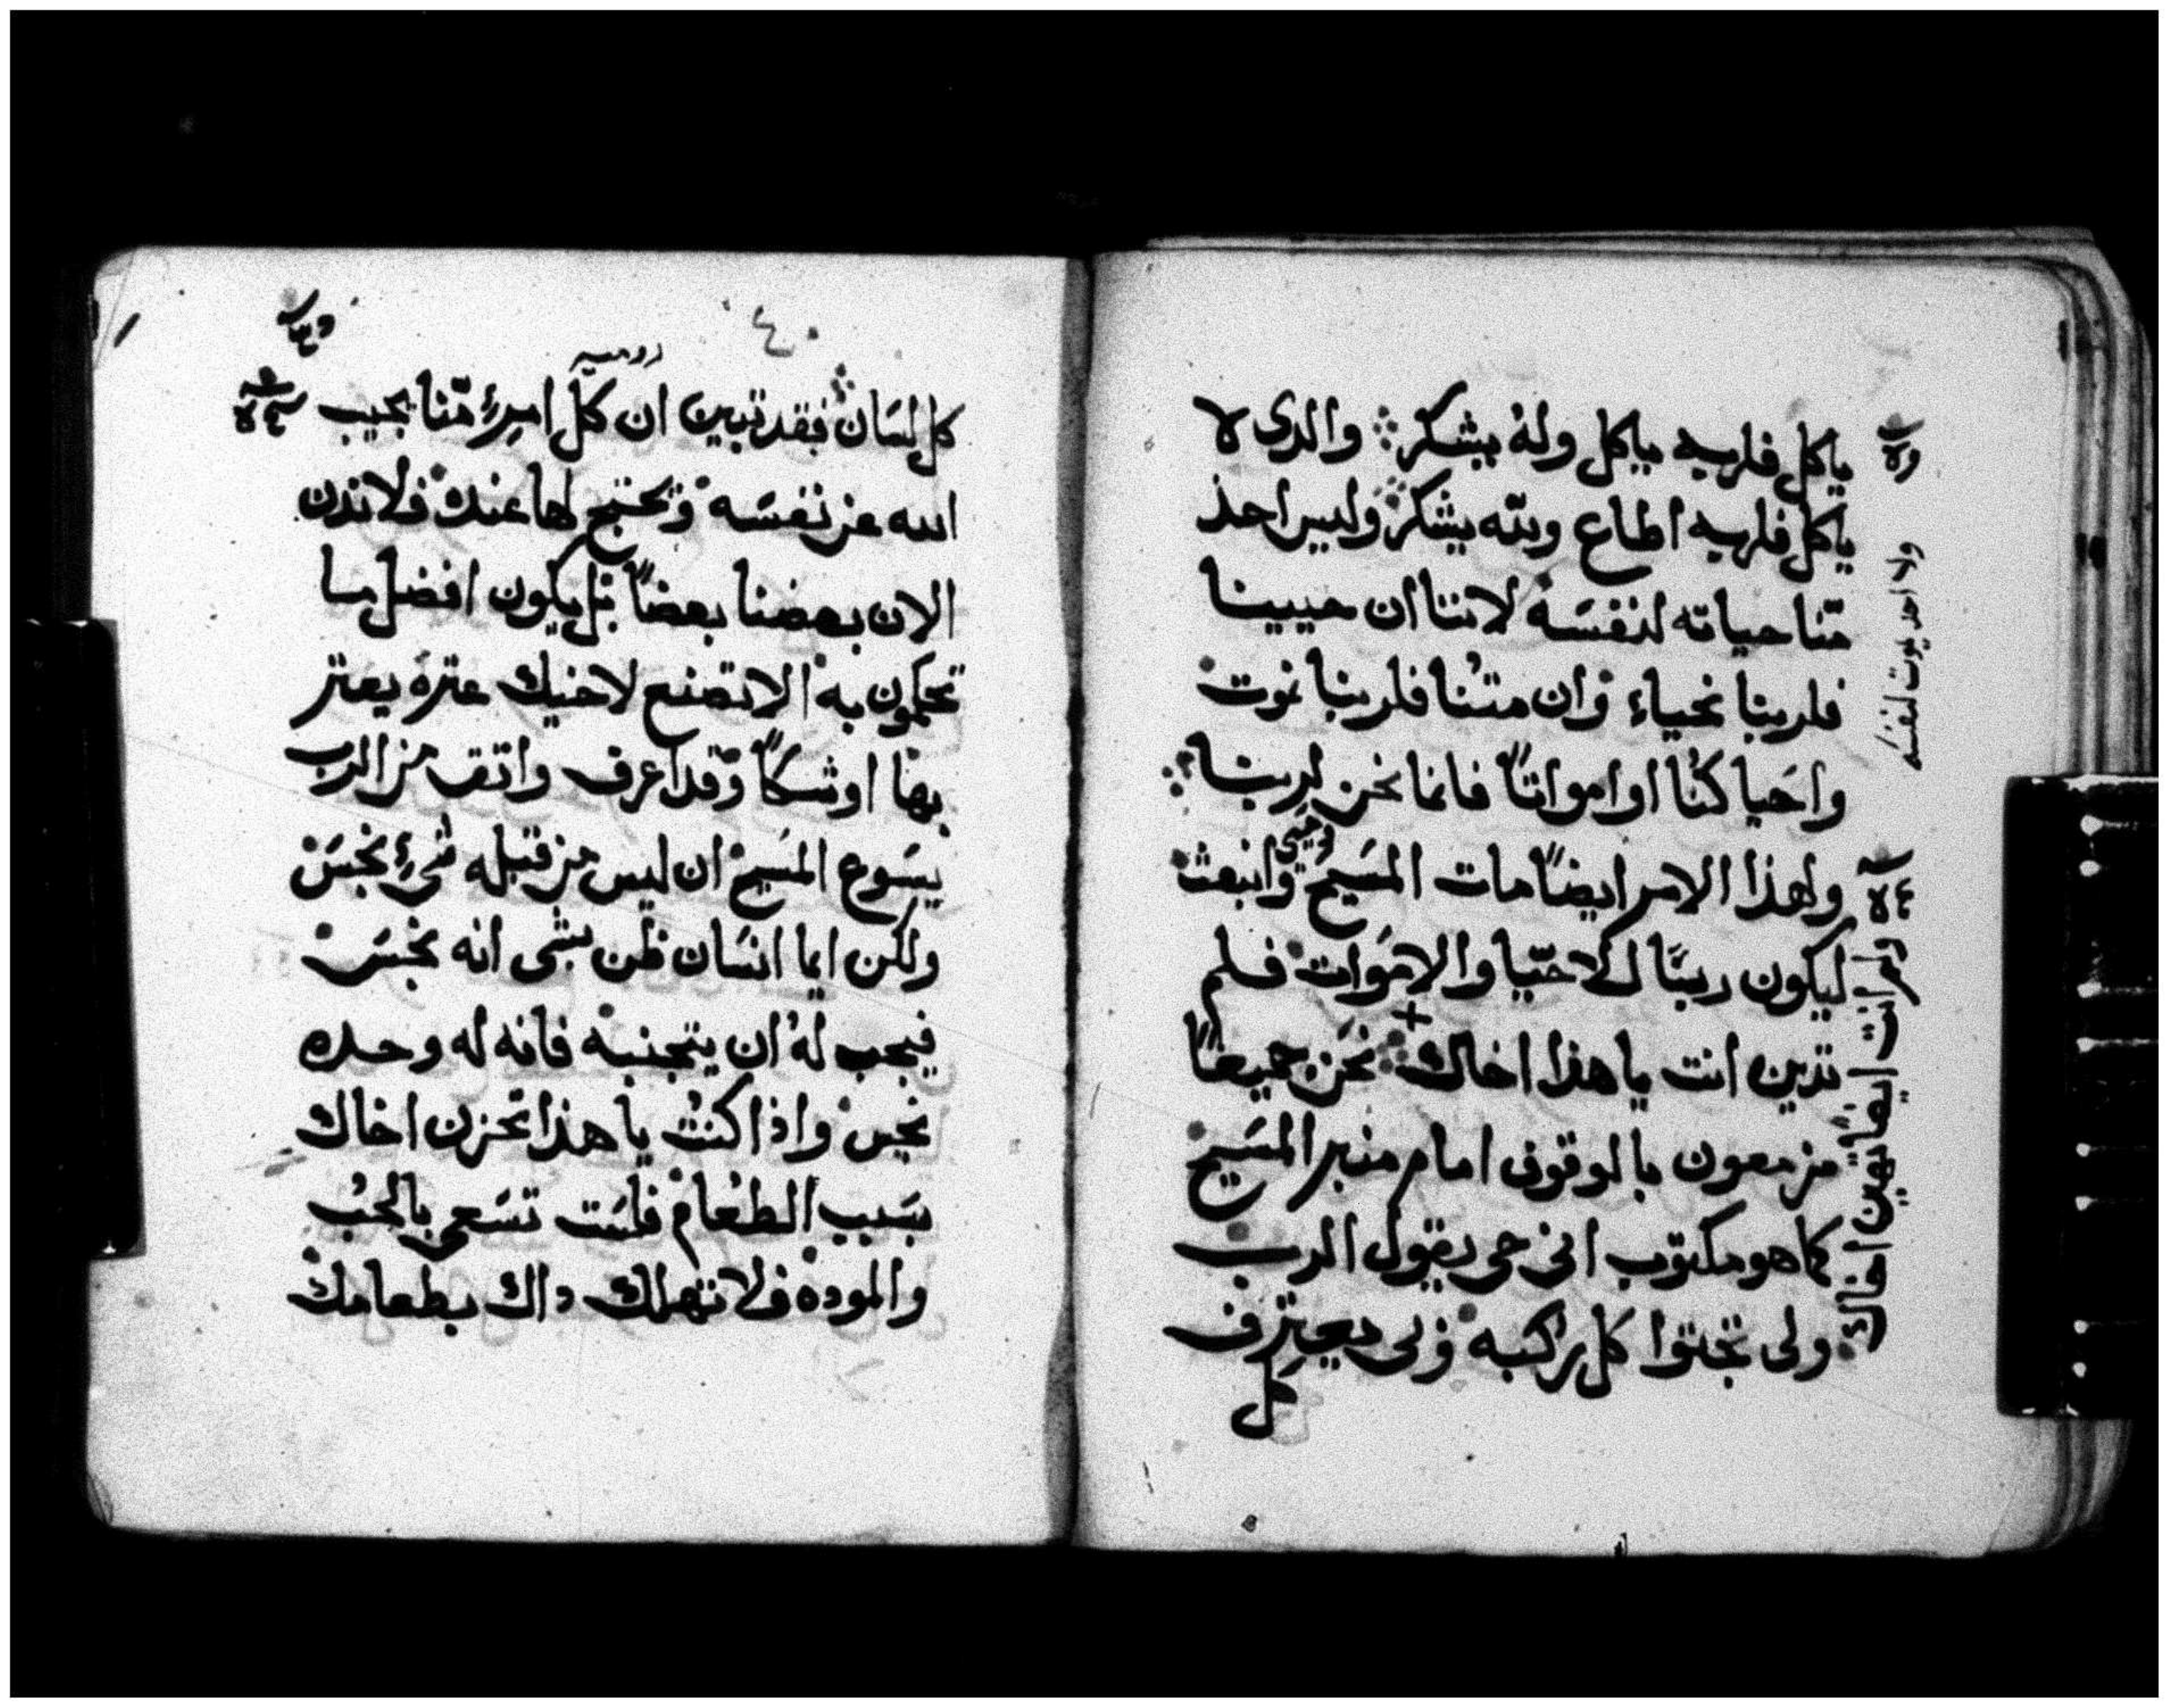 ياكل فلربه ياكل وله يشكر والدى لا
ياكل فلربه اطاع ولله يشكر وليس احد
منّا حياته لنفسَه لاننا ان حيينا
فلربنا نحياء وان متنا فلربنا نموت
واحَيا كنّا او امواتاً فانما نحن لربنا
ولهذا الامر ايضاً مات المسَيح وحيى وانبعث
ليكون ربنا للاحيّا والاموَات فلم
تدين انت يا هذا اخاك نحن جميعاً
مزمعون بالوقوف امام منبر المسَيح
كما هو مكتوب انى حى يقول الرب
ولى تجثوا كل ركبه ولى يعترف
كل
ولا احد يموت لنفسه
ولم انت ايضاً تهين اخاك
٤٠
روميه
كل لسَان فقد تبين ان كل امرءٍ منّا يجيب
الله عن نفسَه ويحتج لها عنده فلا ندن
الان بعضنا بعضاً بل يكون افضل ما
تحكمون به الا تصنع لاخيك عتره يعتر
بها او شكاً وقد اعرف واتق من الرب
يسَوع المسَيح ان ليس من قبله شىء نجسَ
ولكن ايما انسَان ظن بشى انه نجسَ
فيجب له ان يتجنبه فانه له وحده
نجس واذا كنت يا هذا تحزن اخاك
بسَبب الطعام فلسَت تسَعى بالحب
والموده فلا تهلك داك بطعامك